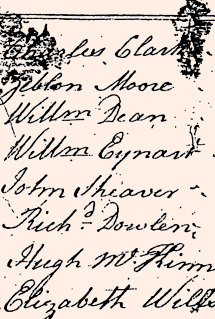 Charles Clark
Zeblon Moore
Willm Dean
Willm Eynart
John Sheaver
Richd Dowlen
Hugh Mc
Elizabeth